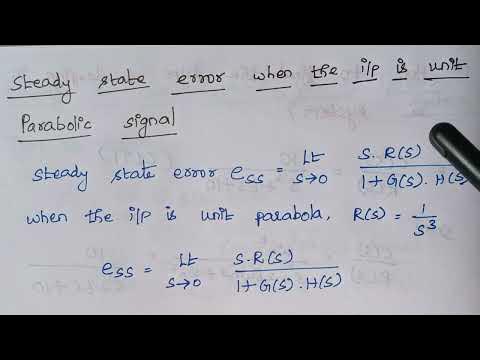 Steady state error when the i/p is unit
Parabolic signal
Steady state error ess = Lt s→0 S.R(S) / 1+G(S).H(S)
when the i/p is unit parabola, R(S) = 1/S³
ess = Lt s→0 S.R(S) / 1+G(S).H(S)